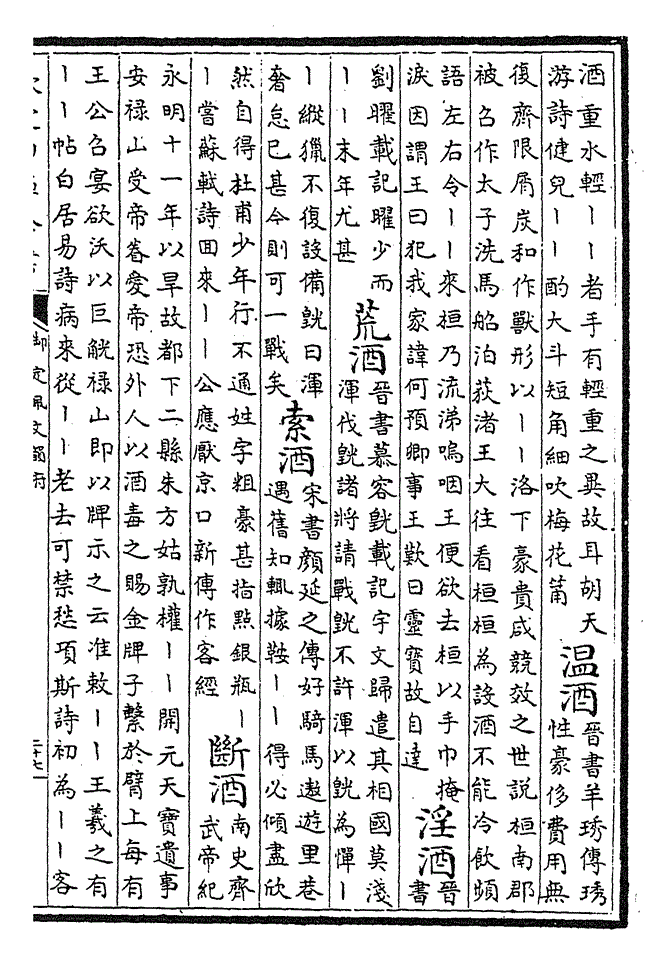 酒重水輕丨丨者手有輕重之異故耳胡天
游詩健兒丨丨酌大斗短角細吹梅花莆
温酒
晉書羊琇傳琇
性豪侈費用無
復齊限屑炭和作獸形以丨丨洛下豪貴咸競效之世說桓南郡
被召作太子洗馬船泊荻渚王大往看桓桓為設酒不能冷飲頻
語左右令丨丨來桓乃流涕嗚咽王便欲去桓以手巾掩
淚因謂王曰犯我家諱何預卿事王歎曰靈寶故自達
淫酒
晉
書
劉曜載記曜少而
丨丨末年尤甚
荒酒
晉書慕容皝載記宇文歸遣其相國莫淺
渾伐皝諸將請戰皝不許渾以皝為憚丨
丨縱獵不復設備皝曰渾
奢怠已甚今則可一戰矣
索酒
宋書顔延之傳好騎馬遨遊里巷
遇舊知輒據鞍丨丨得必傾盡欣
然自得杜甫少年行不通姓字粗豪甚指點銀瓶丨
丨嘗蘇軾詩回來丨丨公應厭京口新傳作客經
斷酒
南史齊
武帝紀
永明十一年以旱故都下二縣朱方姑孰權丨丨開元天寶遺事
安禄山受帝眷愛帝恐外人以酒毒之賜金牌子繫於臂上每有
王公召宴欲沃以巨觥禄山即以牌示之云准敕丨丨王羲之有
丨丨帖白居易詩病來從丨丨老去可禁愁項斯詩初為丨丨客
御定佩文韻府